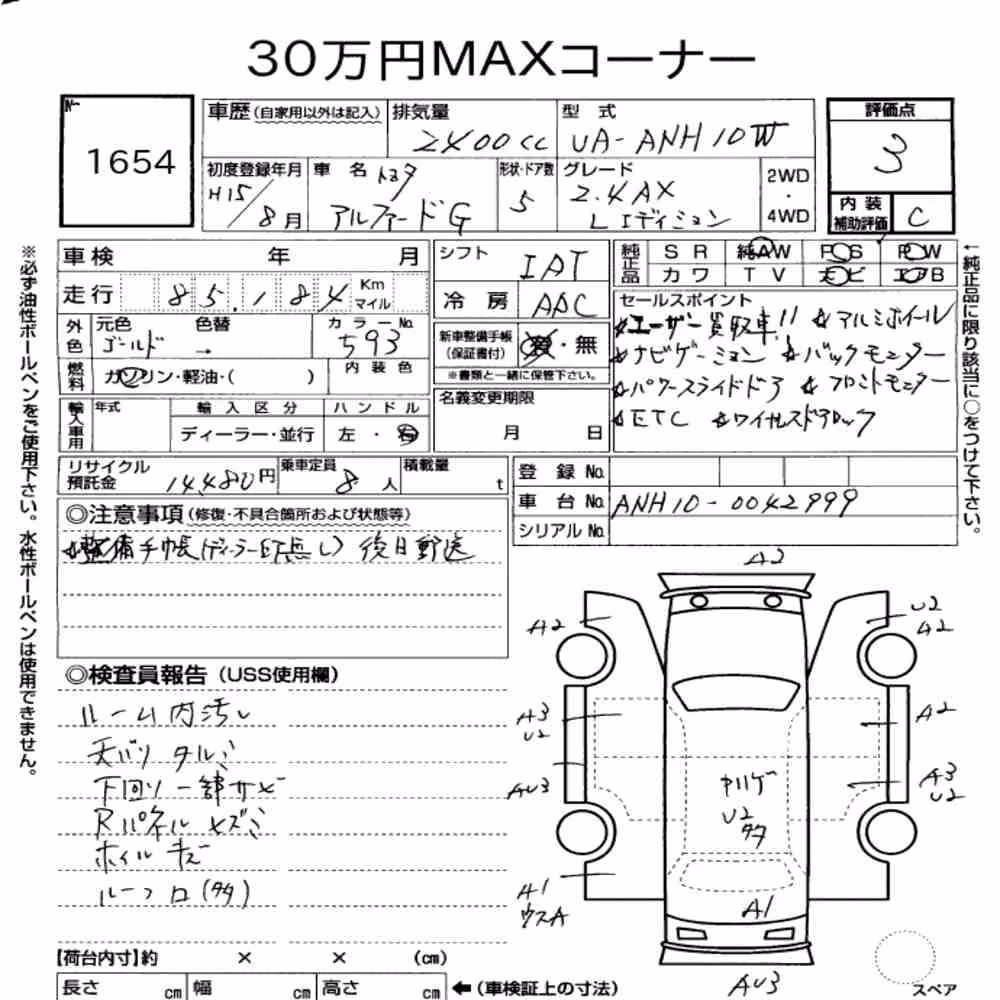 30万円MAXコーナー
No.
1654
車歴 (自家用以外は記入) 排気量 2400cc 型式 UA-ANH10W
初度登録年月 H15/8月 車名 トヨタ アルファードG 形状・ドア数 5 グレード 2.4AX Lエディション 2WD・4WD
評価点 3
内装補助評価 C
車検 年 月
走行 85,184 Km マイル
シフト IAT
冷房 AAC
純正品 SR 純AW PS PW
カワ TV ナビ エアB
外色 元色 ゴールド 色替 → カラーNo. 593
燃料 ガソリン・軽油・( ) 内装色
輸入車用 年式 輸入区分 ディーラー・並行 ハンドル 左・右
新車整備手帳(保証書付) 有・無
※書類と一緒に保管下さい。
名義変更期限 月 日
セールスポイント
☆ユーザー買取車!! ☆アルミホイール
☆ナビゲーション ☆バックモニター
☆パワースライドドア ☆フロントモニター
☆ETC ☆ワイヤレスドアロック
リサイクル預託金 14,480円 乗車定員 8人 積載量 t
登録No.
車台No. ANH10-0042999
シリアルNo.
◎注意事項 (修復・不具合箇所および状態等)
☆整備手帳(ディーラー印無し) 後日郵送
◎検査員報告 (USS使用欄)
ルーム内汚レ
天バリタルミ
下回リ一部サビ
Rパネルユガミ
ホイルキズ
A3
A2
U2
A2
A3
U2
A2
AU3
A3
U2
U2
多
A1
A1
AU3
【荷台内寸】約 × × (cm)
長さ cm 幅 cm 高さ cm
←(車検証上の寸法)
スペア
※必ず油性ボールペンをご使用下さい。水性ボールペンは使用できません。
←純正品に限り該当に○をつけて下さい。